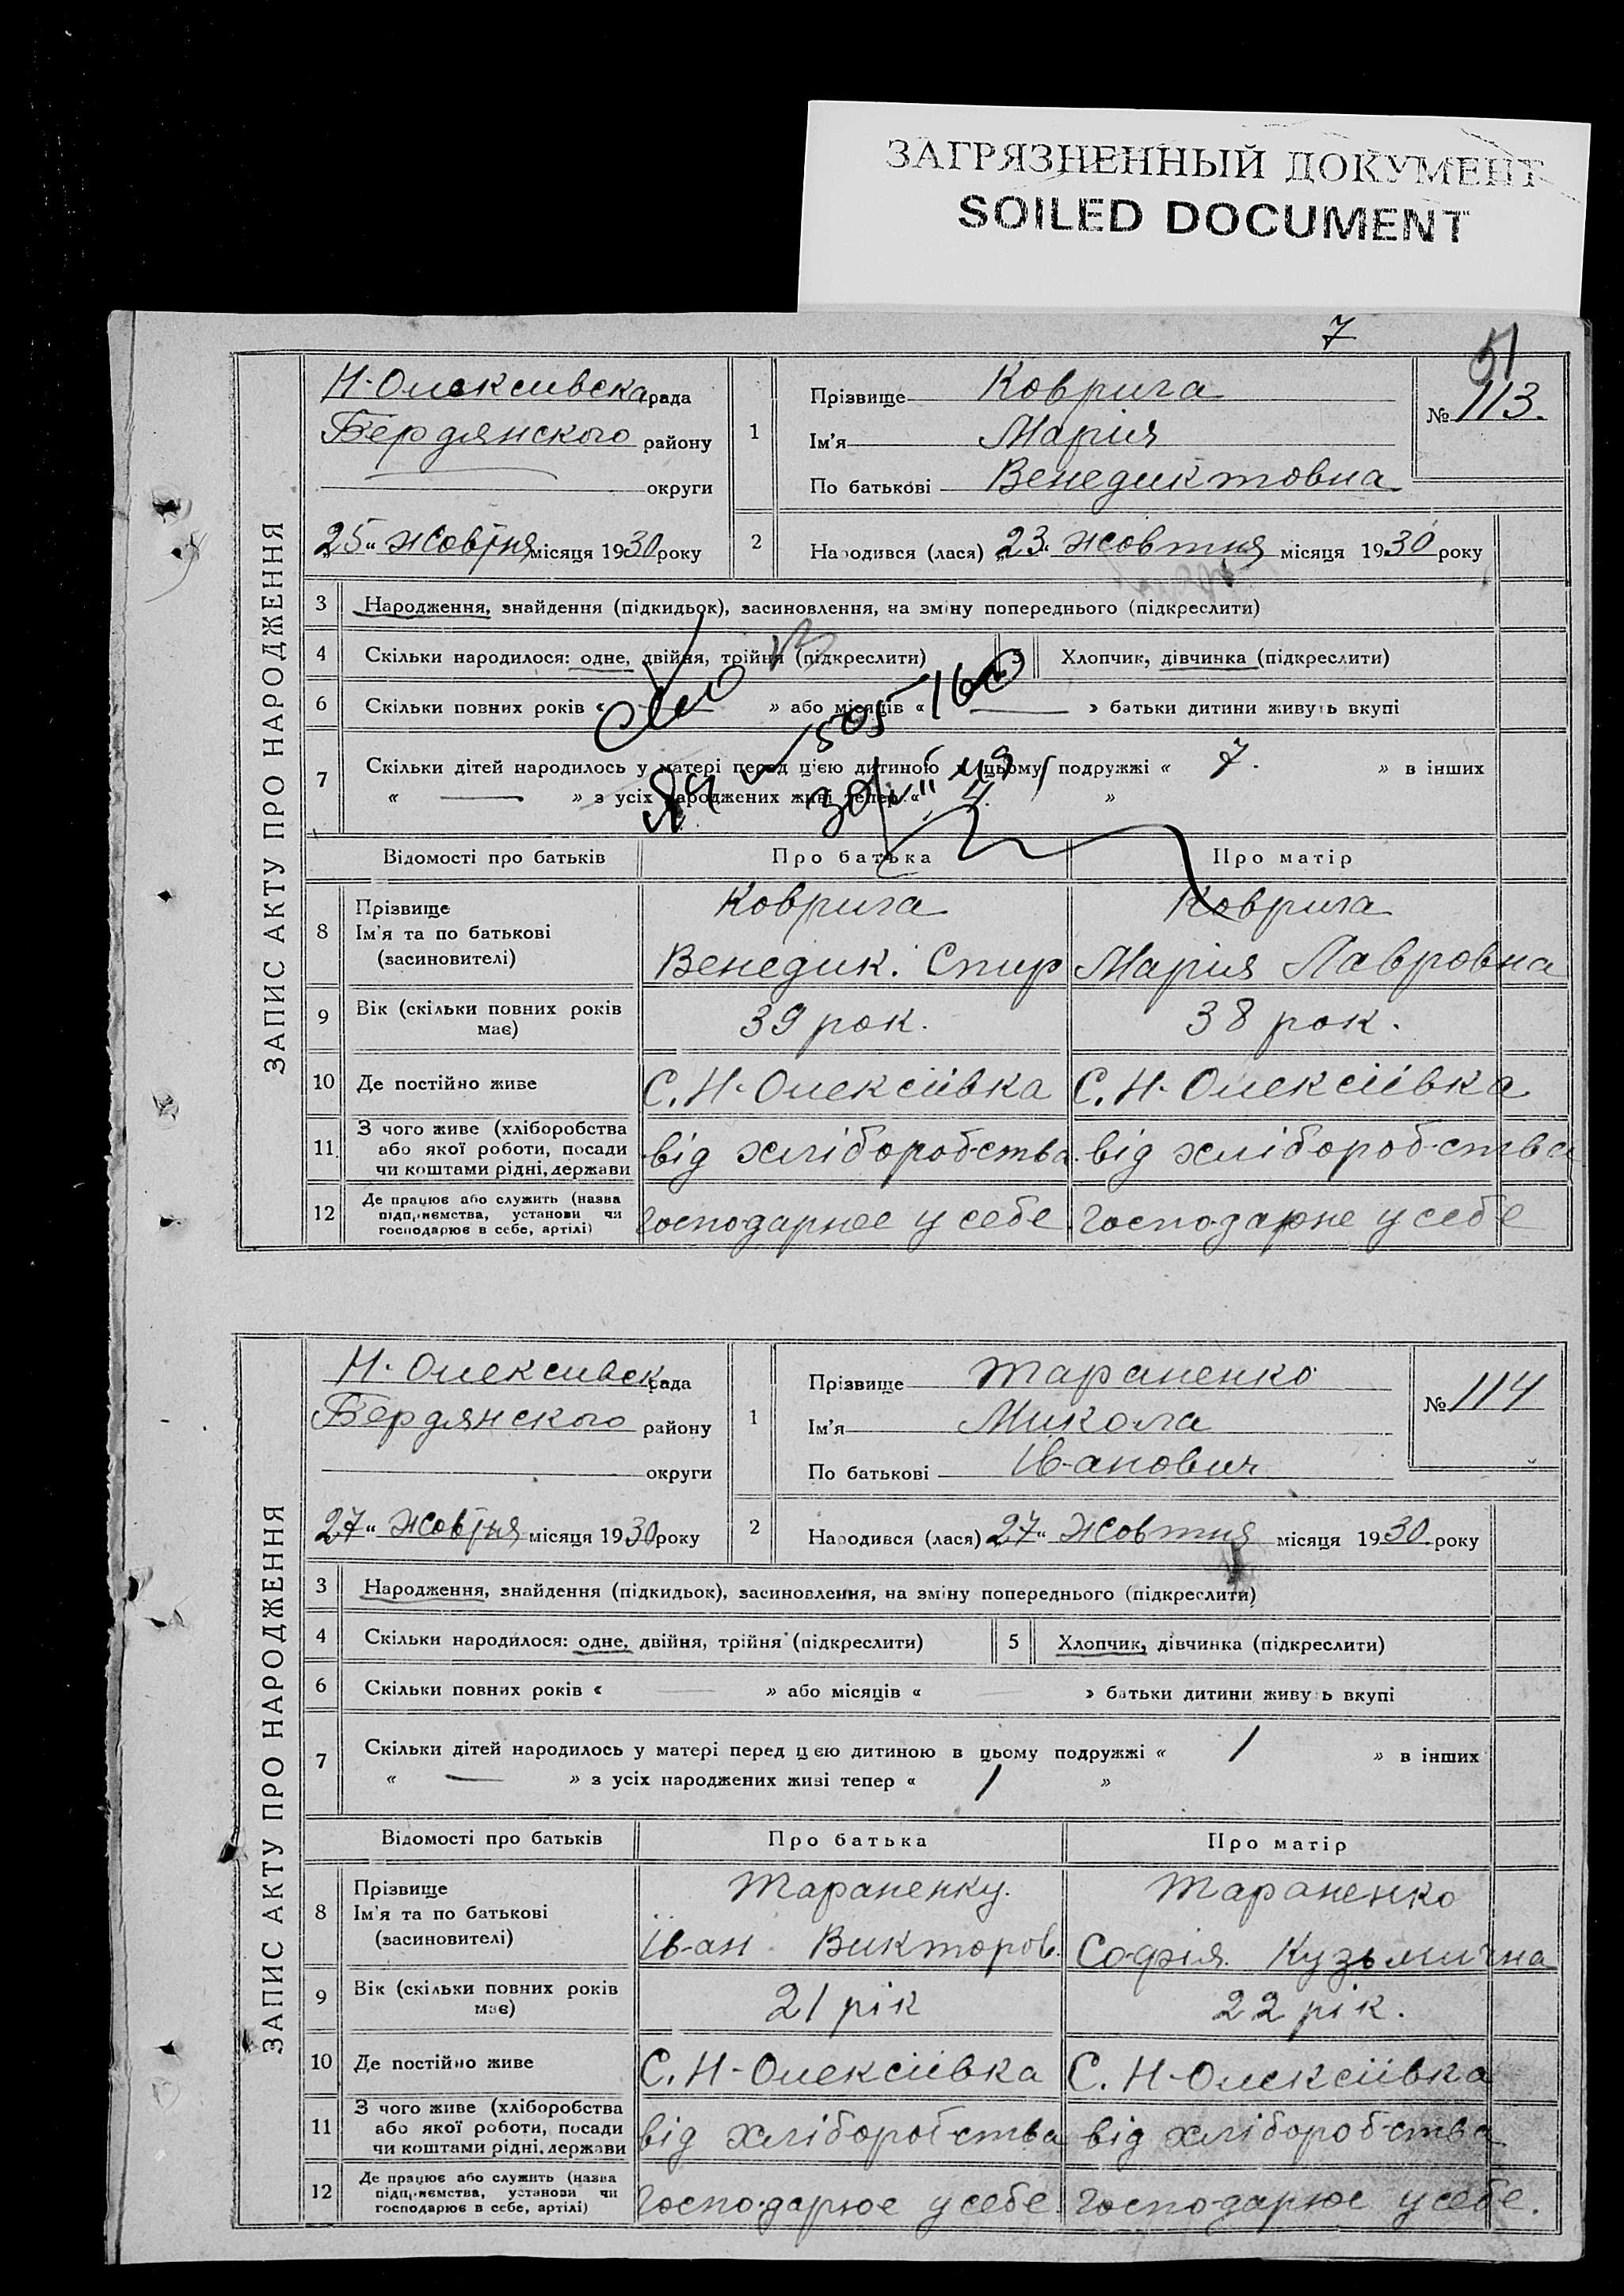 ЗАГРЯЗНЕННЫЙ ДОКУМЕНТ
SOILED DOCUMENT
7
51
ЗАПИС АКТУ ПРО НАРОДЖЕННЯ
Н-Олексивска рада
Бердянского району
округи
25 " Жовтня місяця 1930 року
1
Прізвище Коврига
Ім'я Мария
По батькові Венедиктовна
№ 113.
2
Народився (лася) 23 " жовтня місяця 1930 року
3 Народження, знайдення (підкидьок), засиновлення, на зміну попереднього (підкреслити)
4 Скільки народилося: одне, двійня, трійня (підкреслити) 5 Хлопчик, дівчинка (підкреслити)
6 Скільки повних років « — » або місяців « — » батьки дитини живуть вкупі
7 Скільки дітей народилось у матері перед цією дитиною в цьому подружжі « 7. » в інших
« — » з усіх народжених живі тепер « 4. »
Відомості про батьків Про батька Про матір
8 Прізвище Коврига Коврига
Ім'я та по батькові
(засиновителі) Венедик. Спир Мария Лавровна
9 Вік (скільки повних років має) 39 рок. 38 рок.
10 Де постійно живе С. Н-Олексіівка С. Н-Олексіівка
11. З чого живе (хліборобства
або якої роботи, посади
чи коштами рідні, держави від хліборобства. від хліборобства
12 Де працює або служить (назва
підприємства, установи чи
господарює в себе, артілі) господарнее у себе. господарне у себе
ЗАПИС АКТУ ПРО НАРОДЖЕННЯ
Н-Олексивск рада
Бердянского району
округи
27 " Жовтня місяця 1930 року
1
Прізвище Тараненко
Ім'я Микола
По батькові Іванович
№ 114
2
Народився (лася) 27 " Жовтня місяця 1930 року
3 Народження, знайдення (підкидьок), засиновлення, на зміну попереднього (підкреслити)
4 Скільки народилося: одне, двійня, трійня (підкреслити) 5 Хлопчик, дівчинка (підкреслити)
6 Скільки повних років « — » або місяців « — » батьки дитини живуть вкупі
7 Скільки дітей народилось у матері перед цією дитиною в цьому подружжі « 1 » в інших
« — » з усіх народжених живі тепер « 1 »
Відомості про батьків Про батька Про матір
8 Прізвище Тараненку. Тараненко
Ім'я та по батькові
(засиновителі) Іван Викторов. Софія Кузьмична
9 Вік (скільки повних років має) 21 рік 22 рік.
10 Де постійно живе С. Н-Олексіівка С. Н-Олексіівка
11 З чого живе (хліборобства
або якої роботи, посади
чи коштами рідні, держави від хліборобства від хліборобства
12 Де працює або служить (назва
підприємства, установи чи
господарює в себе, артілі) господарюе у себе. господарюе у себе.